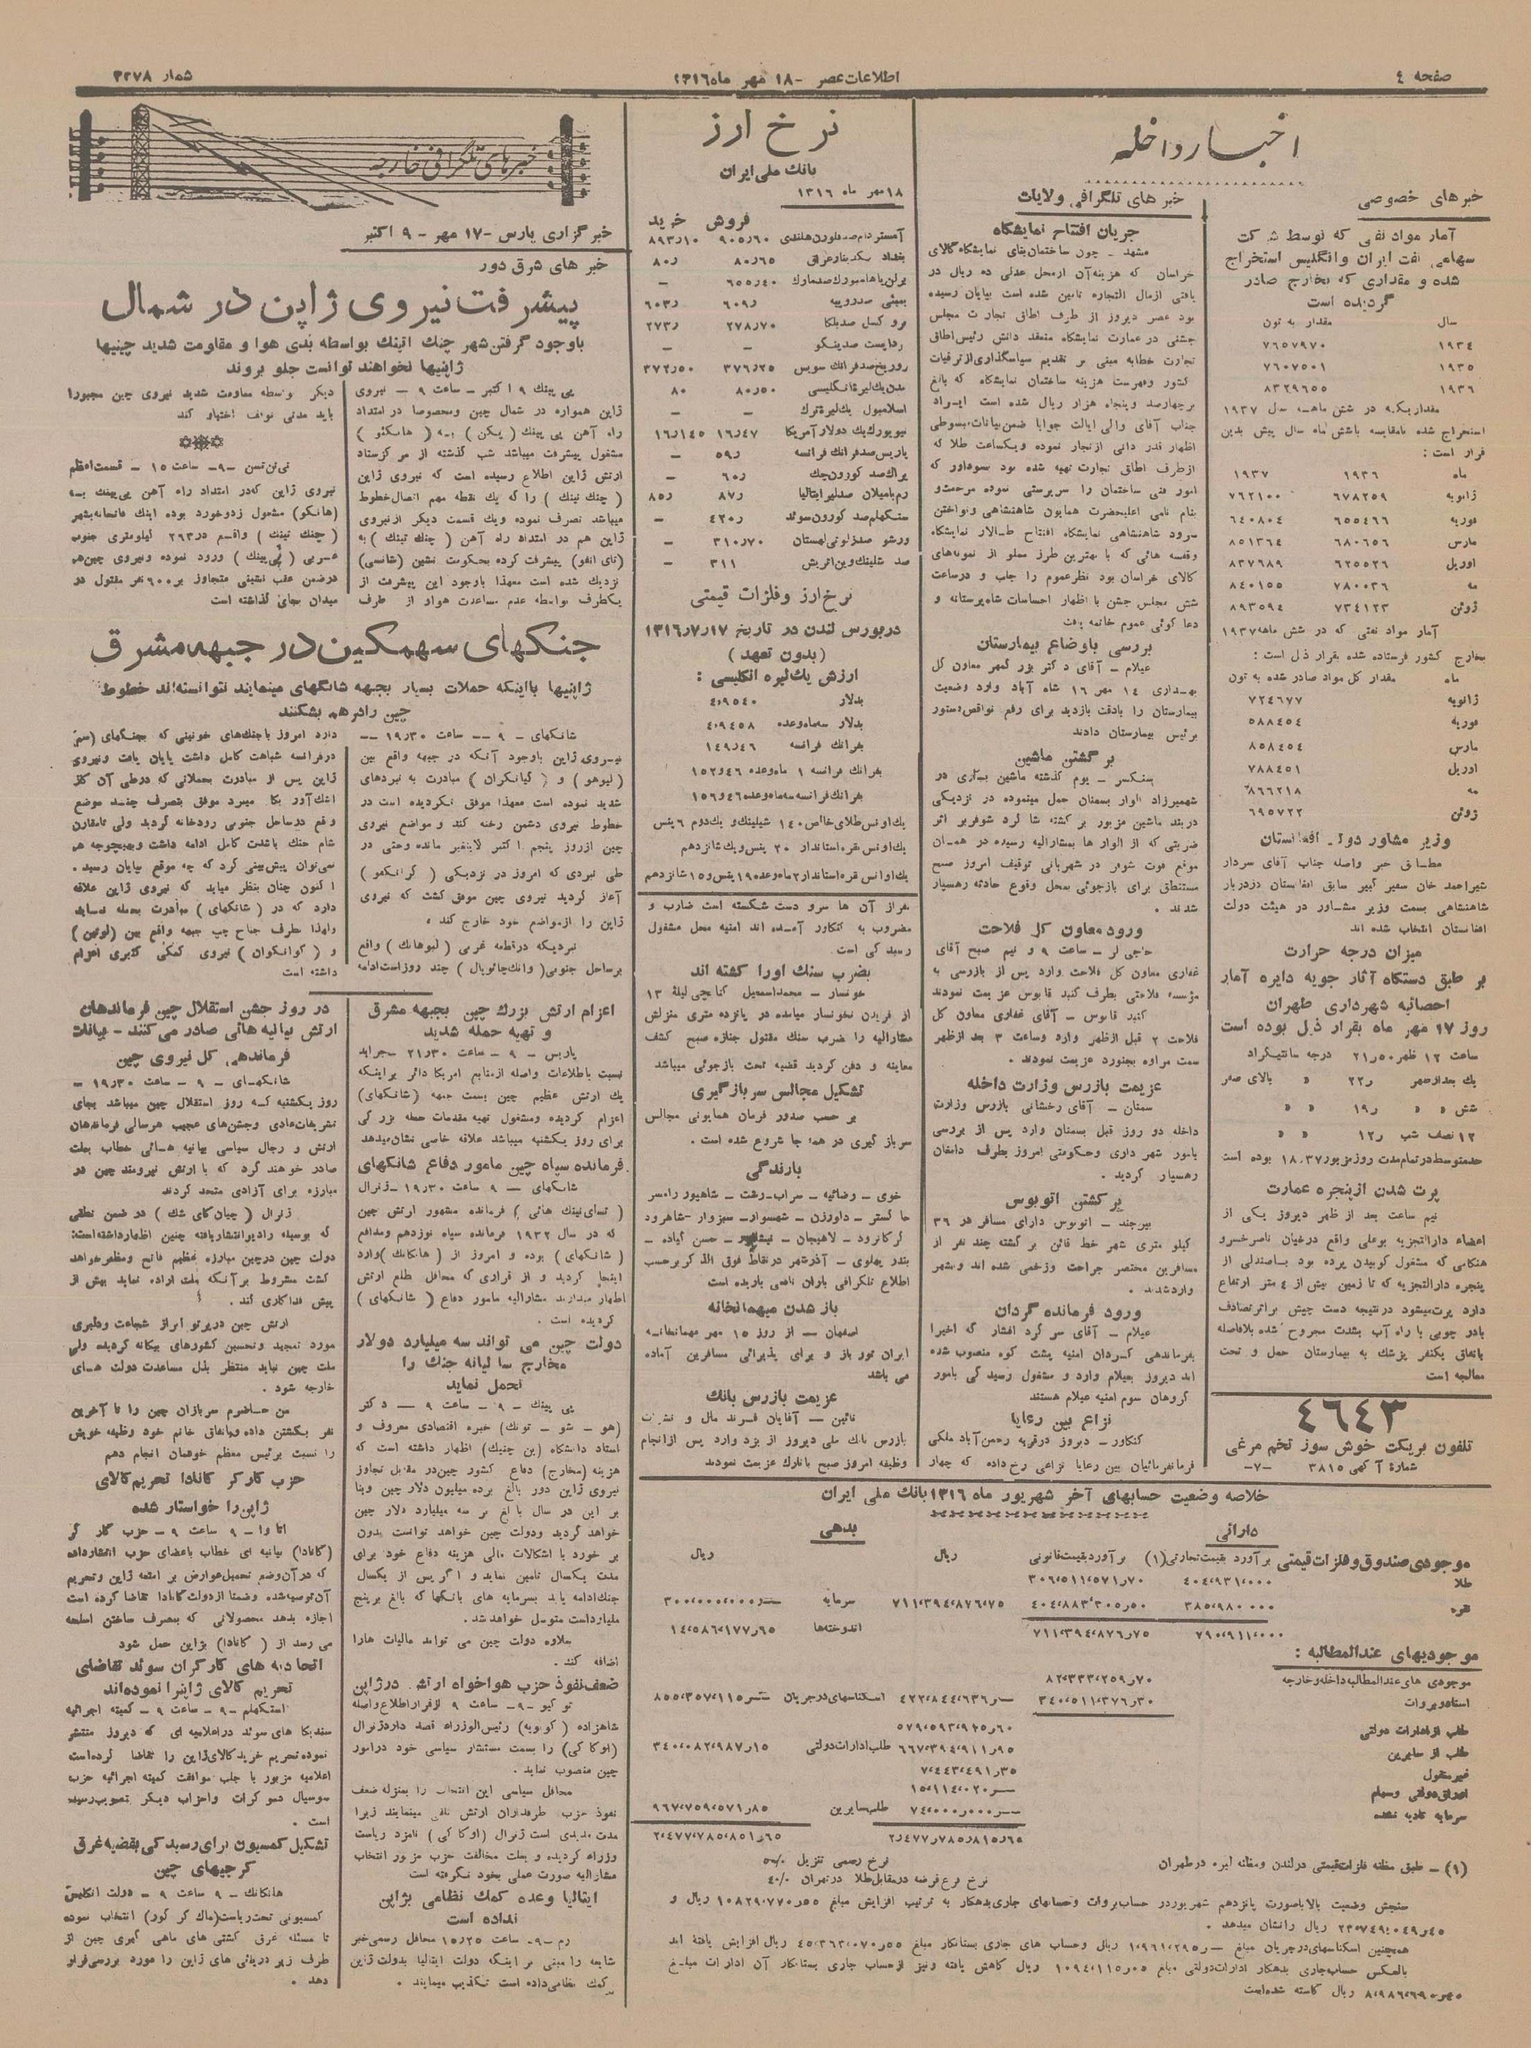 صفحه ٤
اطلاعات عصر - ١٨ مهر ماه ١٣١٦
شمار ٣٣٧٨
اخبار داخله
خبر های خصوصی
آمار مواد نفتی که توسط شرکت
سهامی نفت ایران و انگلیس استخراج
شده و مقداری که بخارج صادر
گردیده است
سال مقدار به تون
١٩٣٤ ٧٦٥٧٩٧٠
١٩٣٥ ٧٦٠٧٥٠١
١٩٣٦ ٨٣٢٩٦٥٥
مقداریکه در شش ماهه سال ١٩٣٧
استخراج شده بامقایسه باشش ماه سال پیش بدین
قرار است :
ماه ١٩٣٦ ١٩٣٧
ژانویه ٦٧٨٢٥٩ ٧٦٢١٠٠
فوریه ٦٥٥٤٦٦ ٦٤٠٨٠٤
مارس ٦٨٠٦٥٦ ٨٥١٣٦٤
اوریل ٦٢٥٥٢٦ ٨٣٧٦٨٩
مه ٧٨٠٠٣٦ ٨٤٠١٥٥
ژوئن ٧٣٤١٢٣ ٨٩٣٥٩٤
آمار مواد نفتی که در شش ماهه ١٩٣٧
بخارج کشور فرستاده شده بقرار ذیل است :
ماه مقدار کل مواد صادر شده به تون
ژانویه ٧٢٤٦٧٧
فوریه ٥٨٨٤٥٤
مارس ٨٥٨٤٥٤
اوریل ٧٨٨٤٥١
مه ٨٦٦٢١٨
ژوئن ٦٩٥٧٢٢
وزیر مشاور دولت افغانستان
مطابق خبر واصله جناب آقای سردار
شیراحمد خان سفیر کبیر سابق افغانستان دردربار
شاهنشاهی بسمت وزیر مشاور در هیئت دولت
افغانستان انتخاب شده اند
میزان درجه حرارت
بر طبق دستگاه آثار جویه دایره آمار
احصائیه شهرداری طهران
روز ١٧ مهر ماه بقرار ذیل بوده است
ساعت ١٢ ظهر ٥٠ر٢١ درجه سانتیگراد
یك بعدازظهر ر٢٢ » بالای صفر
شش » » ر١٩ » »
١٢ نصف شب ر١٢ » »
حدمتوسط در تمام مدت روز مزبور ١٨٫٣٧ بوده است
پرت شدن از پنجره عمارت
نیم ساعت بعد از ظهر دیروز یکی از
اعضاء دارالتجزیه بوعلی واقع درخیابان ناصرخسرو
هنگامی که مشغول کوبیدن پرده بود باصندلی از
پنجره دارالتجزیه که تا زمین بیش از ٤ متر ارتفاع
دارد پرت میشود درنتیجه دست چپش براثر تصادف
بادر چوبی با راه آب بشدت مجروح شده بلافاصله
باتفاق یکنفر پزشك به بیمارستان حمل و تحت
معالجه است
٤٦٤٣
تلفون بریکت خوش سوز تخم مرغی
شمارۀ آگهی ٣٨١٥ -٧-
خبر های تلگرافی ولایات
جریان افتتاح نمایشگاه
مشهد - چون ساختمان بنای نمایشگاه کالای
خراسان که هزینه آن از محل عدلی ده ریال در
بافتی ازمال التجاره تامین شده است بپایان رسیده
بود عصر دیروز از طرف اطاق تجارت مجلس
جشنی در عمارت نمایشگاه منعقد دانش رئیس اطاق
تجارت خطابه مبنی بر تقدیم سپاسگذاری از ترقیات
کشور وفهرست هزینه ساختمان نمایشگاه که بالغ
بر چهارصد وپنجاه هزار ریال شده است ایراد
جناب آقای والی ایالت جوابا ضمن بیانات مبسوطی
اظهار قدر دانی از تجار نموده ویکساعت طلا که
از طرف اطاق تجارت تهیه شده بود بسوداور که
امور فنی ساختمان را سرپرستی نموده مرحمت و
بنام نامی اعلیحضرت همایون شاهنشاهی ونواختن
سرود شاهنشاهی نمایشگاه افتتاح طالار نمایشگاه
وقفسه هائی که با بهترین طرز مملو از نمونه های
کالای خراسان بود نظر عموم را جلب و درساعت
شش مجلس جشن با اظهار احساسات شاه پرستانه و
دعا گوئی عموم خاتمه یافت
بررسی باوضاع بیمارستان
عیلام - آقای دکتر بزرگمهر معاون کل
بهداری ١٤ مهر ١٦ شاه آباد وارد وضعیت
بیمارستان را بادقت بازدید برای رفع نواقص دستور
برئیس بیمارستان دادند
برگشتن ماشین
سنگسر - یوم گذشته ماشین بساری در
شهمیرزاد الوار بسمنان حمل مینموده در نزدیکی
دربند ماشین مزبور برگشته شاگرد شوفر بر اثر
ضربتی که از الوار ها بمشارالیه رسیده در همان
موقع فوت شوفر در شهربانی توقیف امروز صبح
مستنطق برای بازجوئی بمحل وقوع حادثه رهسپار
شدند .
ورود معاون کل فلاحت
حاجی لر - ساعت ٩ و نیم صبح آقای
غفاری معاون کل فلاحت وارد پس از بازرسی به
مؤسسه فلاحتی بطرف گنبد قابوس عزیمت نمودند
گنبد قابوس - آقای غفاری معاون کل
فلاحت ٢ قبل ازظهر وارد وساعت ٣ بعد ازظهر
سمت مراوه بجنورد عزیمت نمودند .
عزیمت بازرس وزارت داخله
سمنان - آقای رخشانی بازرس وزارت
داخله دو روز قبل بسمنان وارد پس از بررسی
بامور شهرداری وحکومتی امروز بطرف دامغان
رهسپار گردید .
برگشتن اتوبوس
بیرجند - اتوبوس دارای مسافر در ٣٦
کیلو متری شهر خط قائن برگشته چند نفر از
مسافرین مختصر جراحت وزخمی شده اند وبشهر
وارد شدند .
ورود فرمانده گردان
عیلام - آقای سرگرد افشار که اخیرا
بفرماندهی گردان امنیه پشت کوه منصوب شده
اند دیروز بعیلام وارد و مشغول رسیدگی بامور
گروهان سوم امنیه عیلام هستند
نزاع بین رعایا
کنگاور - دیروز درقریه رحمن آباد ملکی
فرمانفرمائیان بین رعایا نزاعی رخ داده که چهار
نرخ ارز
بانك ملی ایران
١٨ مهر ماه ١٣١٦
فروش خرید
آمستردام صد فلورن هلندی ٩٠٥٫٦٠ ٨٩٣٫١٠
بغداد یکدینار عراقی ٨٠٫٦٥ ر٨٠
برلن یاهامبورك صد مارك ٦٥٥٫٤٠ -
بمبئی صد روپیه ر٦٠٩ ر٦٠٣
بروکسل صد بلگا ٢٧٨٫٧٠ ر٢٧٣
بوداپست صد پنگو - -
زوریخ صد فرانك سویس ٣٧٦٫٢٥ ٣٧٢٫٥٠
لندن یك لیره انگلیسی ٨٠٫٥٠ ٨٠
اسلامبول یك لیره ترك - -
نیویورك یك دولار آمریکا ١٦٫٤٧ ١٦٫١٤٥
پاریس صد فرانك فرانسه ر٥٩ -
پراك صد کورون چك ر٦٠ -
رم یامیلان صد لیر ایتالیا ر٨٧ ر٨٥
ستکهلم صد کورون سوئد ر٤٢٠ -
ورشو صد زلوتی لهستان ٣١٠٫٧٠ -
صد شلینك وین اتریش ٣١١ -
نرخ ارز و فلزات قیمتی
در بورس لندن در تاریخ ١٣١٦٫٧٫١٧
( بدون تعهد )
ارزش یك لیره انگلیسی :
بدلار ٤٫٩٥٤٠
بدلار سه ماه وعده ٤٫٩٤٥٨
بفرانك فرانسه ١٤٩٫٤٦
بفرانك فرانسه ١ ماه وعده ١٥٢٫٤٦
بفرانك فرانسه سه ماه وعده ١٥٦٫٤٦
یك اونس طلای خالص ١٤٠ شیلینك و یك دوم ٦ پنس
یك اونس نقره استاندار ٢٠ پنس ویك شانزدهم
یك اونس نقره استاندار ٢ ماه وعده ١٩ پنس و ١٥ شانزدهم
نفر از آن ها سر و دست شکسته است ضارب و
مضروب به کنگاور آمده اند امنیه محل مشغول
رسیدگی است .
بضرب سنك اورا کشته اند
خونسار - محمداسمعیل کتابچی لیلۀ ١٣
از فریدن بخونسار میامده در پانزده متری منزلش
مشارالیه را ضرب سنك مقتول جنازه صبح کشف
معاینه و دفن گردید قضیه تحت بازجوئی میباشد
تشکیل مجالس سربازگیری
بر حسب صدور فرمان همایونی مجالس
سرباز گیری در همه جا شروع شده است .
بارندگی
خوی - رضائیه - سراب - رشت - شاهپور رامسر
جا گستر - داورزن - شهسوار - سبزوار - شاهرود
گرگانرود - لاهیجان - نیشابور - حسن کیاده -
بندر پهلوی - آذرشهر در نقاط فوق الذکر برحسب
اطلاع تلگرافی باران نافعی باریده است
باز شدن میهمانخانه
اصفهان - از روز ١٥ مهر مهمانخانه
ایران تور باز و برای پذیرائی مسافرین آماده
می باشد
عزیمت بازرس بانك
نائین - آقایان فرند مال و
بازرس بانك ملی دیروز از یزد وارد پس از انجام
وظیفه امروز صبح بانارك عزیمت نمودند
خلاصه وضعیت حسابهای آخر شهریور ماه ١٣١٦ بانك ملی ایران
دارائی بدهی
موجودی صندوق و فلزات قیمتی برآورد بقیمت تجارتی (١) برآورد بقیمت قانونی ریال ریال
طلا ٤٠٤،٩٣١،٠٠٠ ٣٠٦،٥١١،٥٧١٫٧٠
نقره ٣٨٥،٩٨٠،٠٠٠ ٤٠٤،٨٨٣،٣٠٥٫٥٠ ٧١١،٣٩٤،٨٧٦،٧٥ سرمایه ٣٠٠،٠٠٠،٠٠٠٫--
٧٩٠،٩١١،٠٠٠ ٧١١،٣٩٤،٨٧٦٫٧٥ اندوخته‌ها ١٤،٥٨٦،١٧٧٫٦٥
موجودیهای عندالمطالبه :
موجودی های عندالمطالبه داخله و خارجه ٨٢،٣٣٣،٢٥٩٫٧٠
اسناد و بروات ٣٤٠،٥١١،٣٧٦٫٣٠ ٤٢٢،٨٤٤،٦٣٦٫-- اسکناسهای در جریان ٨٥٥،٣٥٧،١١٥٫--
طلب از ادارات دولتی ٥٧٩،٥٩٣،٩٤٥٫٦٠
طلب از سایرین ٦٦٧،٣٩٤،٩١١٫٩٥ طلب ادارات دولتی ٣٤٠،٠٨٢،٩٨٧٫١٥
غیرمنقول ٧،٤٤٣،٤٩١٫٣٥
اوراق دولتی و سهام ١٥،١١٤،٠٢٠٫--
سرمایه تادیه نشده ٧٤،٠٠٠،٠٠٠٫-- طلب سایرین ٩٦٧،٧٥٩،٥٧١٫٨٥
٢٫٤٧٧٫٧٨٥٫٨١٥٫٦٥ ٢،٤٧٧،٧٨٥،٨٥١٫٦٥
(١) - طبق مظنه فلزات قیمتی در لندن ومظنه لیره در طهران
نرخ رسمی تنزیل ٥٠٪
نرخ فرع قرضه در مقابل طلا در تهران ٤٠٪
سنجش وضعیت بالا باصورت پانزدهم شهریور در حساب بروات وحسابهای جاری بدهکار به ترتیب افزایش مبلغ ١٠٨٢٩،٧٧٠٫٥٥ ریال و
٢٣،٧٤٩،٠٤٩٫٤٥ ریال را نشان میدهد .
همچنین اسکناسهای در جریان مبلغ ١،٩٦١،٢٩٥٫-- ریال و حساب های جاری بستانکار مبلغ ٤٥،٣٦٣،٠٧٠٫٥٥ ریال افزایش یافته اند
بالعکس حساب جاری بدهکار ادارات دولتی مبلغ ١٠٩٤،١١٥٫٠٥ ریال کاهش یافته و نیز از حساب جاری بستانکار آن ادارات مبلغ
٨،٩٨٦،٦٩٠٫٥٠ ریال کاسته شده است
خبرهای تلگرافی خارجه
خبرگزاری پارس - ١٧ مهر - ٩ اکتبر
خبر های شرق دور
پیشرفت نیروی ژاپن در شمال
باوجود گرفتن شهر چنك اتینك بواسطه بدی هوا و مقاومت شدید چینیها
ژاپنیها نخواهند توانست جلو بروند
پی پینك ٩ اکتبر - ساعت ٩ - نیروی
ژاپن همواره در شمال چین ومخصوصا در امتداد
راه آهن پی پینك ( پکن ) به ( هانکئو )
مشغول پیشرفت میباشد شب گذشته از مرکز ستاد
ارتش ژاپن اطلاع رسیده است که نیروی ژاپن
( چنك تینك ) را که یك نقطه مهم اتصال خطوط
میباشد تصرف نموده ویك قسمت دیگر از نیروی
ژاپن هم در امتداد راه آهن ( چنك تینك ) به
(تای انفو) پیشرفت کرده بحکومت نشین (شانسی)
نزدیك شده است معهذا باوجود این پیشرفت از
یکطرف بواسطه عدم مساعدت هوا و از طرف
دیگر بواسطه مقاومت شدید نیروی چین مجبورا
باید مدتی توقف اختیار کند
تی ین تسن -٩- ساعت ١٥ - قسمت اعظم
نیروی ژاپن که در امتداد راه آهن پی پینك به
(هانکو) مشغول زدوخورد بوده اینك فاتحانه بشهر
( چنك تینك ) واقع در ٢٦٣ کیلومتری جنوب
غربی (پی پینك) ورود نموده ونیروی چین هم
درضمن عقب نشینی متجاوز بر ٦٠٠ نفر مقتول در
میدان بجای گذاشته است
جنگهای سهمگین در جبهه مشرق
ژاپنیها بااینکه حملات بسیار بجبهه شانگهای مینمایند نتوانسته اند خطوط
چین رادرهم بشکنند
شانگهای - ٩ -- ساعت ١٩٫٣٠ --
نیروی ژاپن باوجود آنکه در جبهه واقع بین
(لیوهو) و ( کیانگوان) مبادرت به نبردهای
شدید نموده است معهذا موفق نگردیده است در
خطوط نیروی دشمن رخنه کند و مواضع نیروی
چین ازروز پنجم اکتبر لایتغیر مانده وحتی در
طی نبردی که امروز در نزدیکی ( کوانکفو )
آغاز گردید نیروی چین موفق گشت که نیروی
ژاپن را ازمواضع خود خارج کند ،
نبردیکه در قطعه غربی (لیوهانك) واقع
برساحل جنوبی (وانك چائوپال) چند روزاست ادامه
دارد امروز باجنگهای خونینی که بجنگهای (سم)
درفرانسه شباهت کامل داشت پایان یافت ونیروی
ژاپن پس از مبادرت بحملاتی که درطی آن گاز
اشك آور بکار میبرد موفق بتصرف چند موضع
واقع در ساحل جنوبی رودخانه گردید ولی تامقارن
شام جنك باشدت کامل ادامه داشت وبهیچوجه هم
نمی توان پیش بینی کرد که چه موقع بپایان رسید .
اکنون چنان بنظر میاید که نیروی ژاپن علاقه
دارد که در ( شانگهای ) مبادرت بحمله نماید
ولهذا بطرف جناح چپ جبهه واقع بین (لوتین)
و ( کوانگوان ) نیروی کمکی کثیری اعزام
داشته است
اعزام ارتش بزرك چین بجبهه مشرق
و تهیه حمله شدید
پاریس - ٩ - ساعت ٢١٫٣٠ -جراید
نسبت باطلاعات واصله از منابع امریکا دائر براینکه
یك ارتش عظیم چین بسمت جبهه (شانگهای)
اعزام گردیده ومشغول تهیه مقدمات حمله بزرگی
برای روز یکشنبه میباشد علاقه خاصی نشان میدهد
فرمانده سپاه چین مامور دفاع شانگهای
شانگهای - ٩ ساعت ١٩٫٣٠ -ژنرال
( تسای تینك هائی ) فرمانده مشهور ارتش چین
که در سال ١٩٣٢ فرمانده سپاه نوزدهم ومدافع
( شانگهای ) بوده و امروز از ( هانکانك ) وارد
اینجا گردید و از قراری که محافل مطلع ارتش
اظهار میدارند مشارالیه مامور دفاع ( شانگهای )
گردیده است .
دولت چین می تواند سه میلیارد دولار
مخارج سالیانه جنك را
تحمل نماید
پی پینك - ٩ - ساعت ٩ -- دکتر
(هو - شو - تونك) خبره اقتصادی معروف و
استاد دانشگاه (ین چنیك) اظهار داشته است که
هزینه (مخارج) دفاع کشور چین در مقابل تجاوز
نیروی ژاپن دور بالغ برده میلیون دلار چین وبنا
بر این در سال بالغ بر سه میلیارد دلار چین
خواهد گردید ودولت چین خواهد توانست بدون
بر خورد با اشکالات مالی هزینه دفاع خود برای
مدت یکسال تامین نماید و اگر پس از یکسال
جنك ادامه یابد بسرمایه های بانکها که بالغ برپنج
ملیارد است متوسل خواهد شد .
بعلاوه دولت چین می تواند مالیات هارا
اضافه کند .
ضعف نفوذ حزب هواخواه ارتش در ژاپن
توکیو -٩- ساعت ٩ از قرار اطلاع واصله
شاهزاده (کونویه) رئیس الوزراء قصد دارد ژنرال
(اوکاکی) را بسمت مستشار سیاسی خود درامور
چین منصوب نماید .
محافل سیاسی این انتخاب را بمنزله ضعف
نفوذ حزب طرفداران ارتش تلقی مینمایند زیرا
مدت مدیدی است ژنرال (اوکاکی) نامزد ریاست
وزراء گردیده و بعلت مخالفت حزب مزبور انتخاب
مشارالیه صورت عملی بخود نگرفته است
ایتالیا وعده کمك نظامی بژاپن
نداده است
رم -٩- ساعت ١٥٫٢٥ محافل رسمی خبر
شایعه را مبنی بر اینکه دولت ایتالیا بدولت ژاپن
کمك نظامی داده است تکذیب مینمایند .
در روز جشن استقلال چین فرماندهان
ارتش بیانیه هائی صادر می کنند - بیانات
فرماندهی کل نیروی چین
شانگهای - ٩ - ساعت ١٩٫٣٠ -
روز یکشنبه که روز استقلال چین میباشد بجای
تشریفات عادی وجشن های عجیب هر سالی فرماندهان
ارتش و رجال سیاسی بیانیه هائی خطاب بملت
صادر خواهند کرد که با ارتش نیرومند چین در
مبارزه برای آزادی متحد گردند
ژنرال ( چیان کای شك ) در ضمن نطقی
که بوسیله رادیو انتشار یافته چنین اظهار داشته است:
دولت چین درچین مبارزه عظیم فاتح ومظفر خواهد
گشت مشروط برآنکه ملت اراده نماید بیش از
پیش فداکاری کند .
ارتش چین دیر یا زود ابراز شجاعت ودلیری
مورد تمجید و تحسین کشورهای بیگانه گردیده ولی
ملت چین نباید منتظر بذل مساعدت دولت های
خارجه شود .
من حاضرم سربازان چین را تا آخرین
نفر بکشتن داده وباتفاق خانم خود وظیفه خویش
را نسبت برئیس معظم خودمان انجام دهم
حزب کارگر کانادا تحریم کالای
ژاپن را خواستار شده
اتاوا - ٩ ساعت ٩ - حزب کارگر
(کانادا) بیانیه ای خطاب باعضای حزب انتشار داده
که در آن وضع تحمیل عوارض بر امتعه ژاپن وتحریم
آن توصیه شده وضمنا از دولت کانادا تقاضا کرده است
اجازه بدهد محصولاتی که بمصرف ساختن اسلحه
می رسد از ( کانادا ) بژاپن حمل شود
اتحادیه های کارگران سوئد تقاضای
تحریم کالای ژاپنرا نموده اند
استکهلم - ٩ - ساعت ٩ - کمیته اجرائیه
سندیکا های سوئد در اعلامیه ای که دیروز منتشر
نموده تحریم خرید کالای ژاپن را تقاضا کرده است
اعلامیه مزبور با جلب موافقت کمیته اجرائیه حزب
سوسیال دموکرات واحزاب دیگر تصویب رسیده
است .
تشکیل کمسیون برای رسیدگی بقضیه غرق
کرجیهای چین
هانکانك - ٩ ساعت ٩ - دولت انگلیس
کمسیونی تحت ریاست (ماك گرگور) انتخاب نموده
تا مسئله غرق کشتی های ماهی گیری چین از
طرف زیر دریائی های ژاپن را مورد بررسی قرار
دهد .